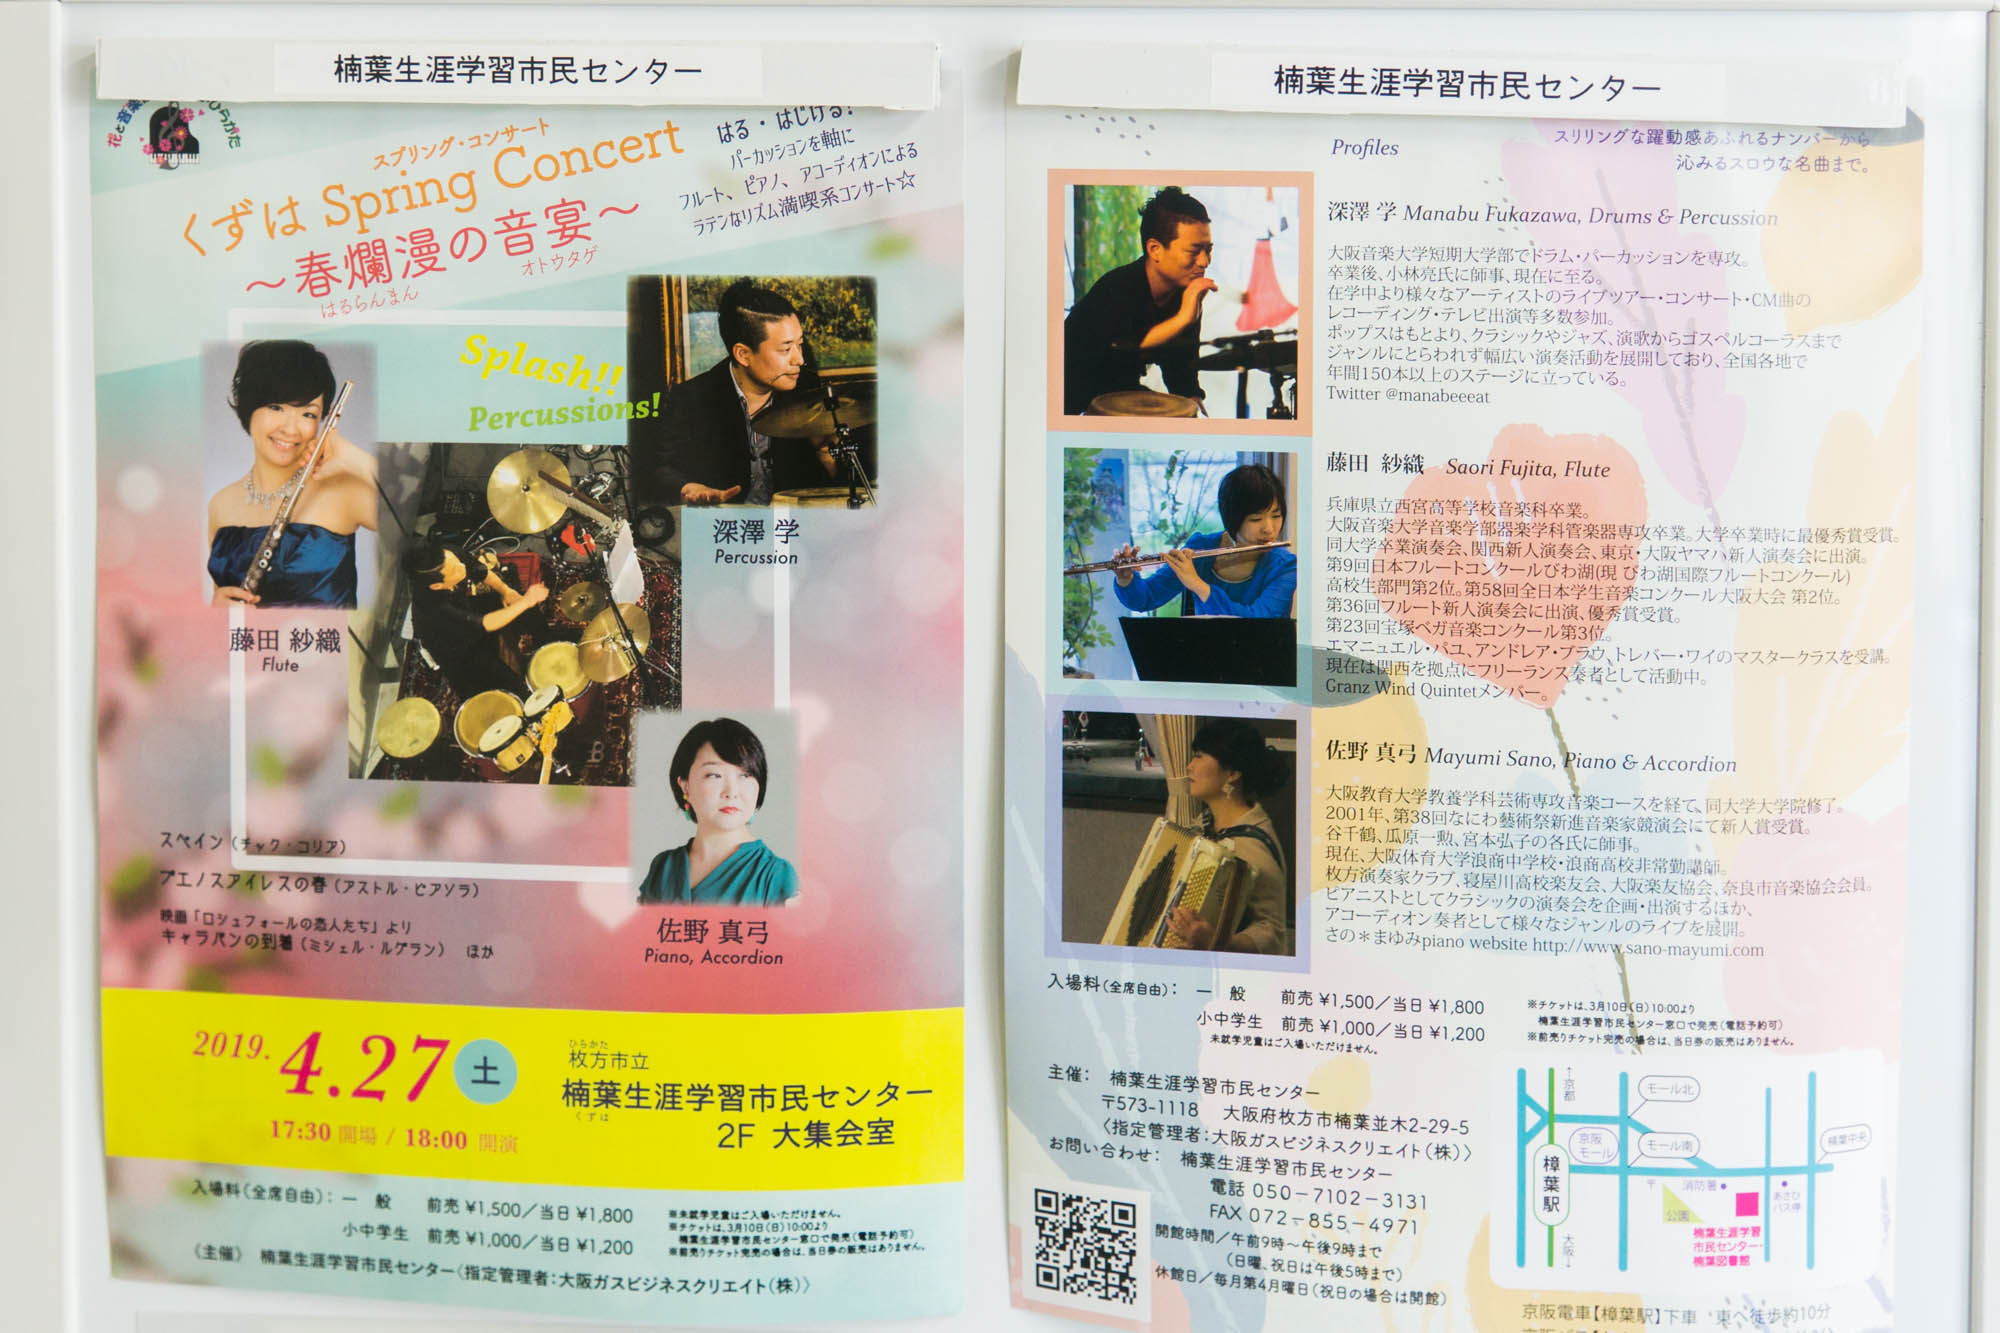 楠葉生涯学習市民センター
スプリング・コンサート
くずは Spring Concert
～春爛漫の音宴～
はるらんまん
オトウタゲ
はる・はじける!
パーカッションを軸に
フルート、ピアノ、アコーディオンによる
ラテンなリズム満喫系コンサート☆
Splash!!
Percussions!
深澤 学
Percussion
藤田 紗織
Flute
佐野 真弓
Piano, Accordion
スペイン（チック・コリア）
ブエノスアイレスの春（アストル・ピアソラ）
映画「ロシュフォールの恋人たち」より
キャラバンの到着（ミシェル・ルグラン） ほか
2019. 4.27 土
17:30 開場 / 18:00 開演
ひらかた
枚方市立
楠葉生涯学習市民センター
くずは
2F 大集会室
入場料（全席自由）： 一 般 前売 ¥1,500／当日 ¥1,800
小中学生 前売 ¥1,000／当日 ¥1,200
※未就学児童はご入場いただけません。
※チケットは、3月10日（日）10:00より
楠葉生涯学習市民センター窓口で発売（電話予約可）
※前売りチケット完売の場合は、当日券の販売はありません。
《主催》 楠葉生涯学習市民センター〈指定管理者：大阪ガスビジネスクリエイト（株）〉
楠葉生涯学習市民センター
Profiles
スリリングな躍動感あふれるナンバーから
沁みるスロウな名曲まで。
深澤 学 Manabu Fukazawa, Drums & Percussion
大阪音楽大学短期大学部でドラム・パーカッションを専攻。
卒業後、小林亮氏に師事、現在に至る。
在学中より様々なアーティストのライブツアー・コンサート・CM曲の
レコーディング・テレビ出演等多数参加。
ポップスはもとより、クラシックやジャズ、演歌からゴスペルコーラスまで
ジャンルにとらわれず幅広い演奏活動を展開しており、全国各地で
年間150本以上のステージに立っている。
Twitter @manabeeeat
藤田 紗織 Saori Fujita, Flute
兵庫県立西宮高等学校音楽科卒業。
大阪音楽大学音楽学部器楽学科管楽器専攻卒業。大学卒業時に最優秀賞受賞。
同大学卒業演奏会、関西新人演奏会、東京・大阪ヤマハ新人演奏会に出演。
第9回日本フルートコンクールびわ湖(現 びわ湖国際フルートコンクール)
高校生部門第2位。第58回全日本学生音楽コンクール大阪大会 第2位。
第36回フルート新人演奏会に出演、優秀賞受賞。
第23回宝塚ベガ音楽コンクール第3位。
エマニュエル・パユ、アンドレア・ブラウ、トレバー・ワイのマスタークラスを受講。
現在は関西を拠点にフリーランス奏者として活動中。
Granz Wind Quintetメンバー。
佐野 真弓 Mayumi Sano, Piano & Accordion
大阪教育大学教養学科芸術専攻音楽コースを経て、同大学大学院修了。
2001年、第38回なにわ藝術祭新進音楽家競演会にて新人賞受賞。
谷千鶴、瓜原一勲、宮本弘子の各氏に師事。
現在、大阪体育大学浪商中学校・浪商高校非常勤講師。
枚方演奏家クラブ、寝屋川高校楽友会、大阪楽友協会、奈良市音楽協会会員。
ピアニストとしてクラシックの演奏会を企画・出演するほか、
アコーディオン奏者として様々なジャンルのライブを展開。
さの＊まゆみpiano website http://www.sano-mayumi.com
入場料（全席自由）： 一 般 前売 ¥1,500／当日 ¥1,800
小中学生 前売 ¥1,000／当日 ¥1,200
未就学児童はご入場いただけません。
※チケットは、3月10日（日）10:00より
楠葉生涯学習市民センター窓口で発売（電話予約可）
※前売りチケット完売の場合は、当日券の販売はありません。
主催： 楠葉生涯学習市民センター
〒573-1118 大阪府枚方市楠葉並木2-29-5
〈指定管理者：大阪ガスビジネスクリエイト（株）〉
お問い合わせ： 楠葉生涯学習市民センター
電話 050－7102－3131
FAX 072－855－4971
開館時間／午前9時～午後9時まで
（日曜、祝日は午後5時まで）
休館日／毎月第4月曜日（祝日の場合は開館）
↑京都
モール北
京阪モール
モール南
楠葉中央
樟葉駅
〒
消防署
あさひ
バス停
公園
楠葉生涯学習
市民センター・
楠葉図書館
大阪↓
京阪電車【樟葉駅】下車 東へ徒歩約10分